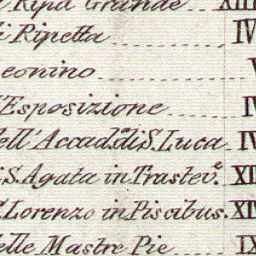 i Ripa Grande XIII
i Ripetta IV
eonino V
l'Esposizione IV
ell' Accad.ª di S. Luca IV
i S. Agata in Trastev.ᵉ XII
S. Lorenzo in Piscibus. XIV
elle Mastre Pie IX